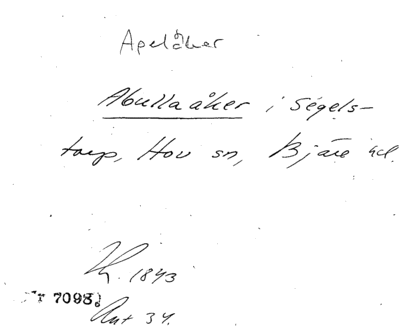 Apelåker
Abullaåker i Segels-
torp, Hov sn, Bjäre hd.
1843
r 7098.)
Ant 34.